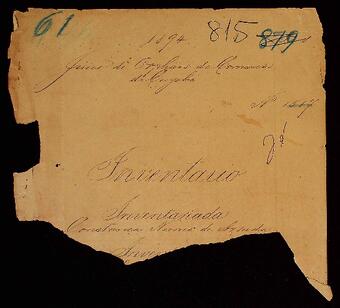 61
1894 815 879
Juizo de Orphãos da Comarca
de Cuyabá
Nº
Inventario
Inventariada
Constança Nunes de
Inve